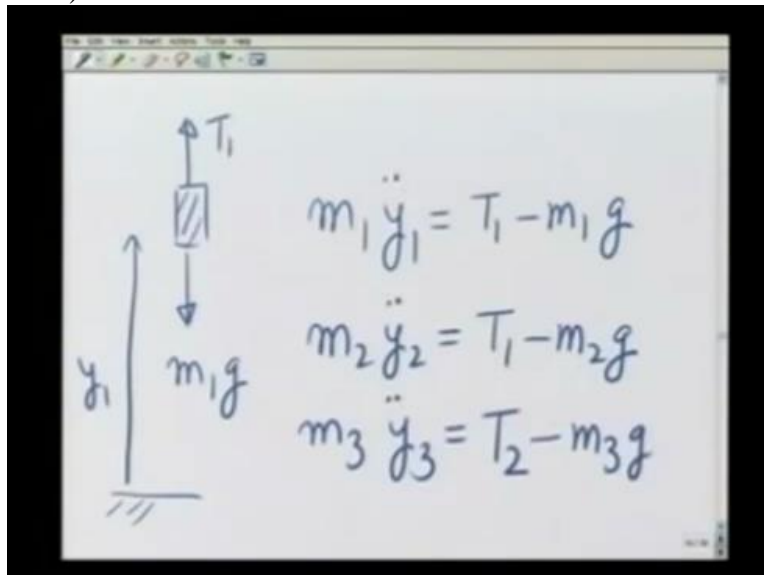 File Edit View Insert Actions Tools Help
T₁
m₁ÿ₁ = T₁ - m₁g
m₂ÿ₂ = T₁ - m₂g
y₁
m₁g
m₃ÿ₃ = T₂ - m₃g